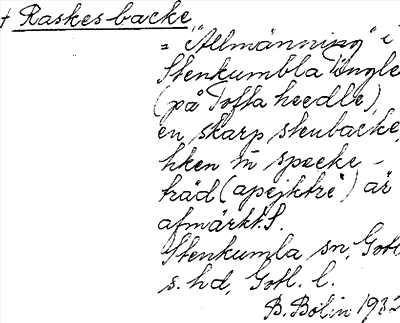 † Raskesbacke
= "Allmänning" i
Stenkumbla Tingle
(på Tofta heedle),
en skarp stenbacke,
hken m specke-
träd (apejktre") är
afmärkt. S.
Stenkumla sn, Gotl
s. hd, Gotl. l.
B. Bolin 1932